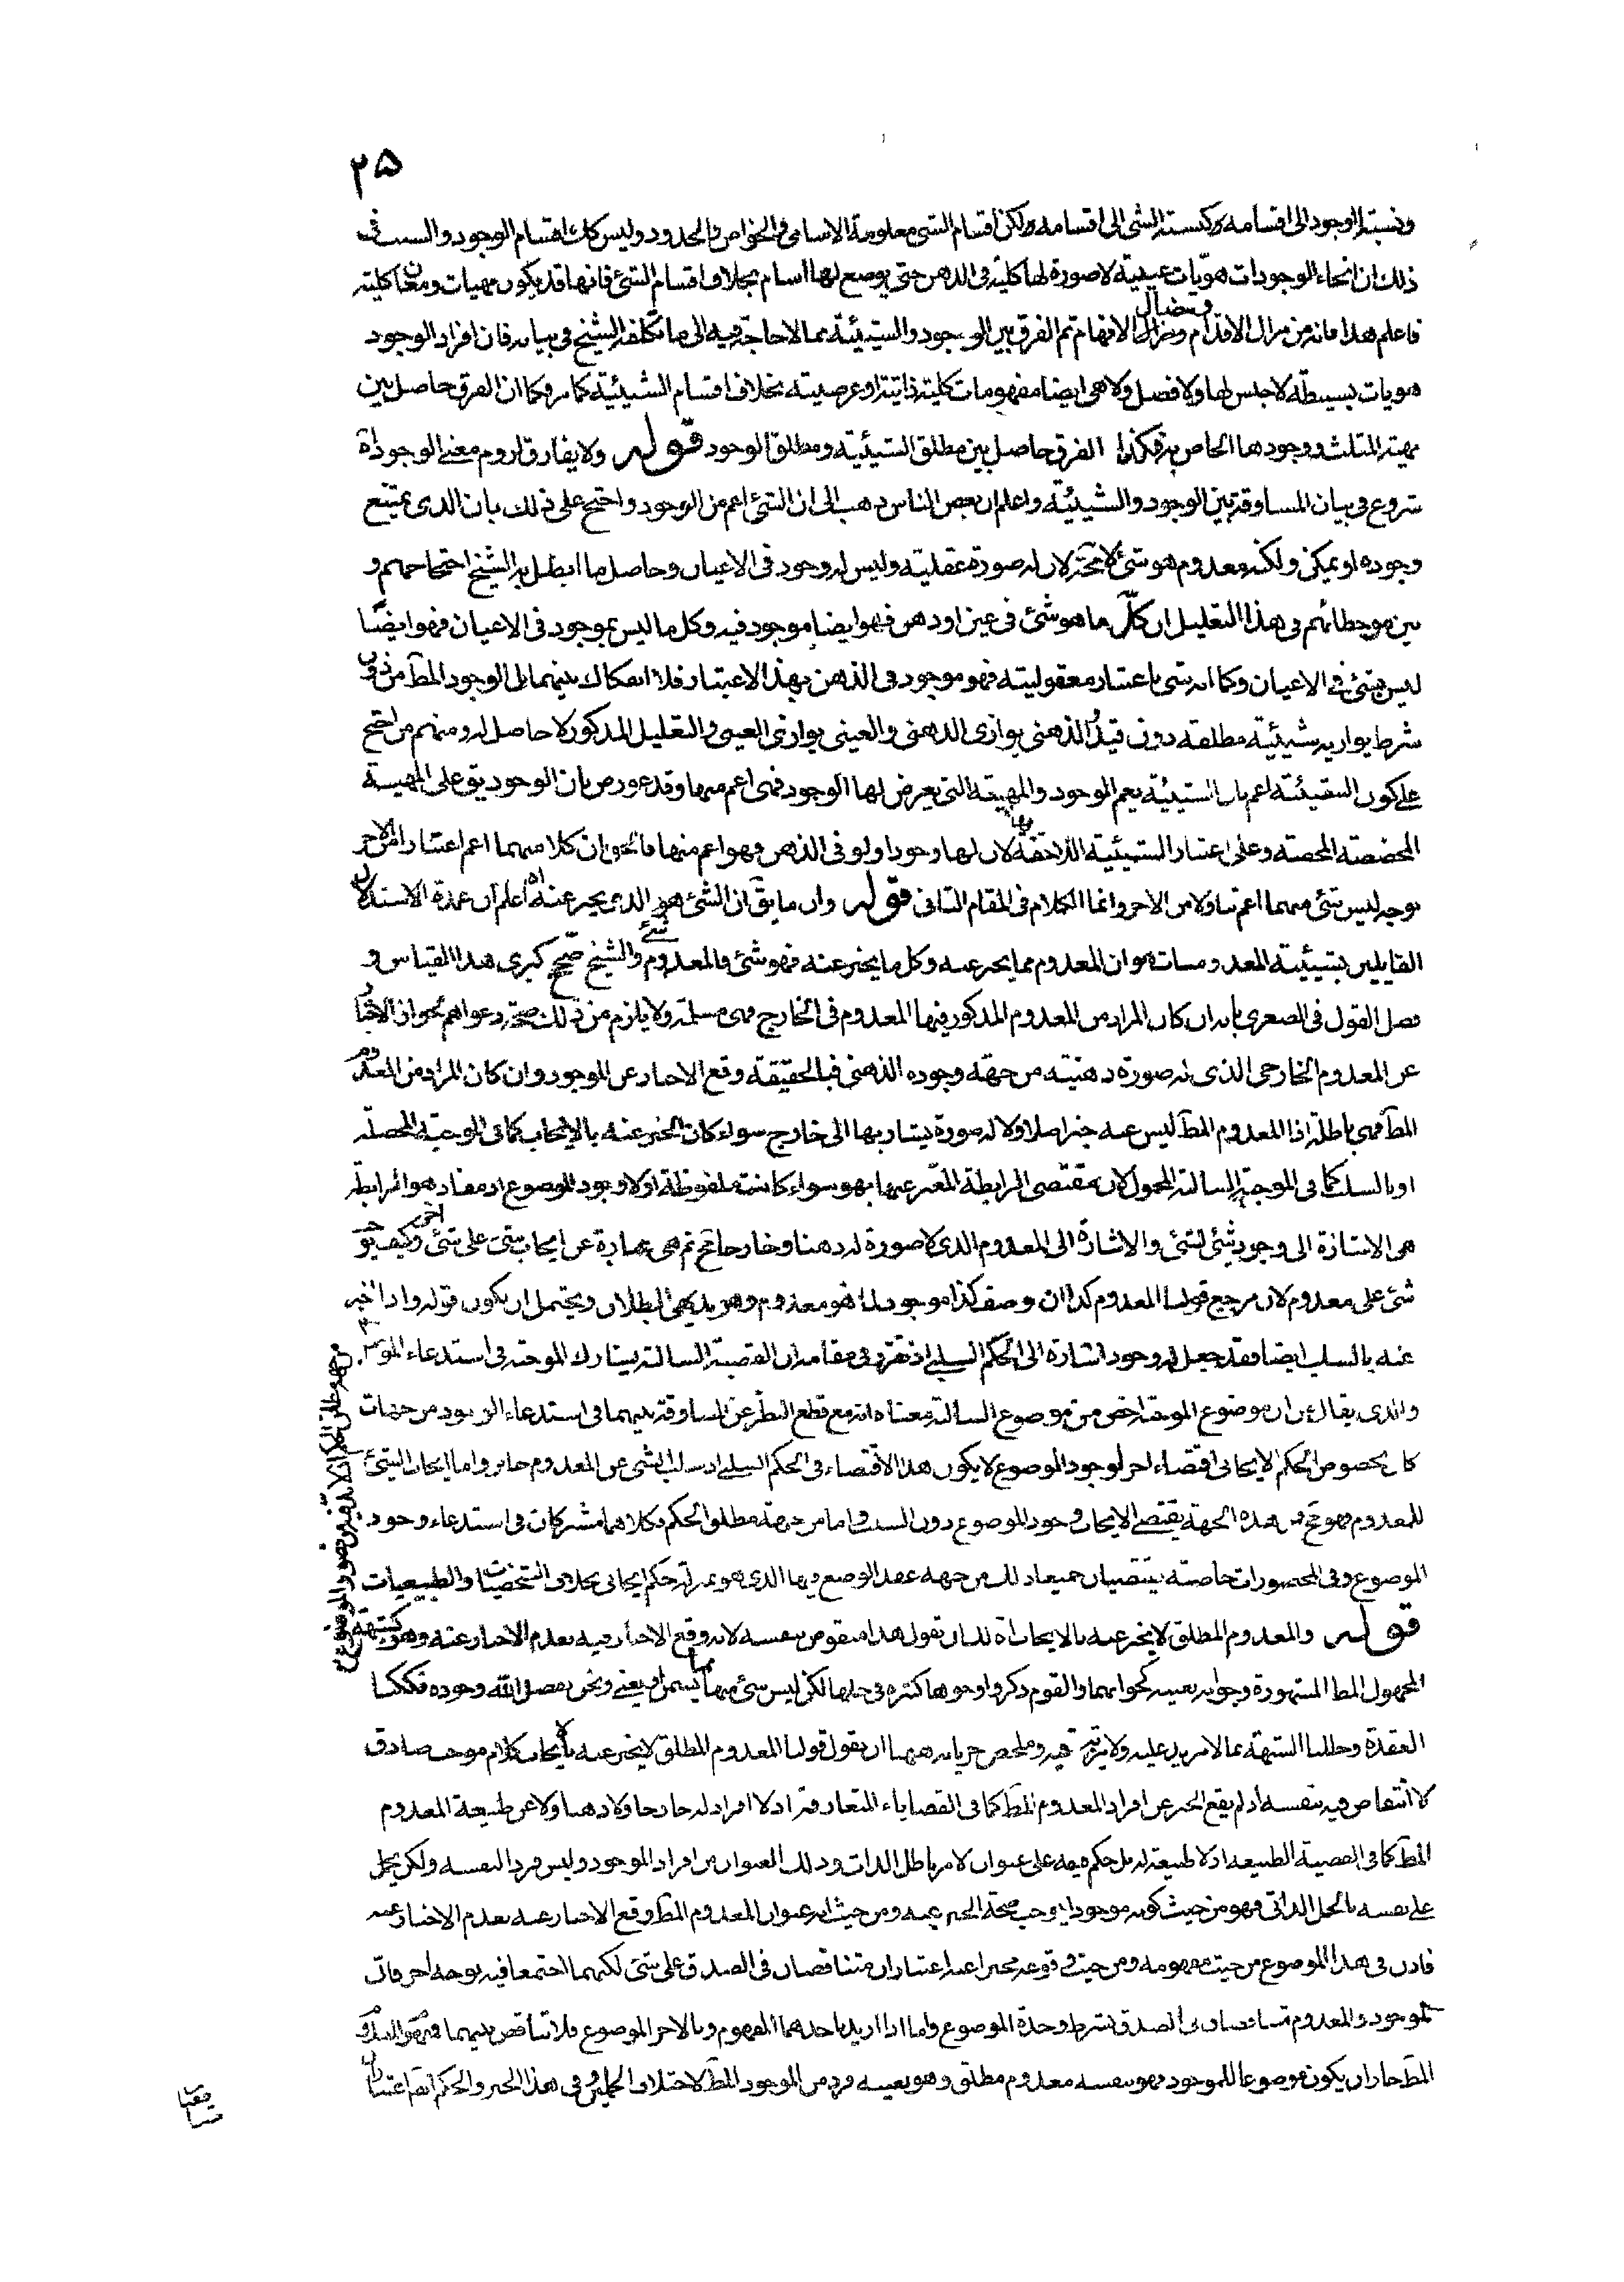 ٢٥
ونسبة الوجود الى اقسامه كنسبة الشئ الى اقسامه لكن اقسام الشئ معلومة الاسامى والخواص والحدود وليس كذلك اقسام الوجود والسبب فى
ذلك ان انحاء الوجودات هويات عينية لا صورة لها كلية فى الذهن حتى يوضع لها اسام بخلاف اقسام الشئ فانها قد يكون مهيات ومعان كلية
فاعلم هذا فانه من مزال الاقدام ومضال الافهام ثم الفرق بين الوجود والشيئية مما لا حاجة فيه الى ما تكلفه الشيخ فى بيانه فان افراد الوجود
هويات بسيطة لا جنس لها ولا فصل ولا هى ايضا مفهومات كلية ذاتية او عرضية بخلاف اقسام الشيئية كما مر وكما ان الفرق حاصل بين
مهية المثلث ووجودها الخاص به فكذا الفرق حاصل بين مطلق الشيئية ومطلق الوجود قوله ولا يفارق لزوم معنى الوجود اه
شروع فى بيان المساوقة بين الوجود والشيئية واعلم ان بعض الناس ذهب الى ان الشئ اعم من الوجود واحتج على ذلك بان الذى يمتنع
وجوده او يمكن ولكنه معدوم هو شئ لا محة لان له صورة عقلية وليس له وجود فى الاعيان وحاصل ما ابطل به الشيخ احتجاجهم و
بين موضع خطائهم فى هذا التعليل ان كل ما هو شئ فى عين او ذهن فهو ايضا موجود فيه وكل ما ليس بموجود فى الاعيان فهو ايضًا
ليس بشئ فى الاعيان وكما انه شئ باعتبار معقوليته فهو موجود فى الذهن بهذا الاعتبار فلا انفكاك بينهما بل الوجود المط من دون
شرط يوازيه شيئية مطلقة دون قيد والذهنى يوازى الذهنى والعينى يوازى العينى والتعليل المذكور لا حاصل له ومنهم من احتج
على كون الشيئية اعم بان الشيئية يعم الموجود والمهية التى يعرض لها الوجود فهى اعم منها وقد عورض بان الوجود يق على المهية
المخصصة المحصة وعلى اعتبار الشيئية اللاحقة بها لان لها وجودا ولو فى الذهن فهو اعم منها فالحق ان كلا منهما اعم اعتبارا من الاخر
بوجه ليس شئ منهما اعم تناولا من الاخر وانما الكلام فى المقام الثانى قوله وان ما يق ان الشئ هو الذى يخبر عنه اه اعلم ان عمدة الاستدلال
القايلين بشيئية المعدومات هو ان المعدوم مما يخبر عنه وكل ما يخبر عنه فهو شئ فالمعدوم شئ والشيخ صحح كبرى هذا القياس و
فصل القول فى الصغرى بانه ان كان المراد من المعدوم المذكور فيها المعدوم فى الخارج فهى مسلمة ولا يلزم من ذلك صحة دعواهم لجواز الاخبار
عن المعدوم الخارجى الذى له صورة ذهنية من جهة وجوده الذهنى فبالحقيقة وقع الاخبار عن الموجود وان كان المراد من المعدوم
المط فهى باطلة اذ المعدوم المط ليس عنه خبر اصلا ولا له صورة يشار بها الى خارج سواء كان الخبر عنه بالايجاب كما فى الموجبة المحصلة
او بالسلب كما فى الموجبة السالبة المحمول لان مقتضى الرابطة المعبر عنها بهو سواء كانت ملفوظة او لا وجود الموضوع اذ مفاد هو الرابطة
هى الاشارة الى وجود شئ لشئ والاشارة الى المعدوم الذى لا صورة له ذهنا وخارجا مح ثم هى عبارة عن ايجاب شئ على شئ اخر وكيف يوجب
شئ على معدوم لان مرجع قولنا المعدوم كذا ان وصف كذا موجود لما هو معدوم وهو بديهى البطلان ويحتمل ان يكون قوله واذا اخبر
عنه بالسلب ايضا فقد جعل له وجود اشارة الى الحكم السلبى اذ تقرر فى مقامه ان القضية السالبة يشارك الموجبة فى استدعاء الموضوع
والذى يقال من ان موضوع الموجبة اخص من موضوع السالبة معناه انه مع قطع النظر عن المساوقة بينهما فى استدعاء الوجود من جهات
كان بخصوص الحكم الايجابى اقتضاء اخر لوجود الموضوع لا يكون هذا الاقتضاء فى الحكم السلبى اذ سلب الشئ عن المعدوم جايز واما ايجاب الشئ
للمعدوم فهو مح فمن هذه الجهة يقتضى الايجاب وجود الموضوع دون السلب واما من جهة مطلق الحكم فكلاهما مشتركان فى استدعاء وجود
الموضوع وفى المحصورات خاصة يقتضيان جميعا ذلك من جهة عقد الوضع فيها الذى هو بمنزلة حكم ايجابى بخلاف الشخصيات والطبيعيات
قوله والمعدوم المطلق لا يخبر عنه بالايجاب اه لك ان تقول هذا منقوض بنفسه لانه وقع الاخبار فيه بعدم الاخبار عنه وهو كشبهة
المجهول المط المشهورة وجوابه بعينه كجوابها والقوم ذكروا وجوها كثيرة فى حلها لكن ليس شئ منها يسمن او يغنى ونحن بفضل الله وجوده فككنا
العقدة وحللنا الشبهة بما لا مزيد عليه ولا مرية فيه وملخص جريانه ههنا ان يقول قولنا المعدوم المطلق لا يخبر عنه بالايجاب كلام موجب صادق
لا انتقاض فيه بنفسه اذ لم يقع الخبر عن افراد المعدوم المط كما فى القضايا المتعارفة اذ لا افراد له خارجا ولا ذهنا ولا عن طبيعة المعدوم
المط كما فى القضية الطبيعية اذ لا طبيعة له بل حكم فيه على عنوان لامر باطل الذات وذلك العنوان من افراد الموجود وليس فردا لنفسه ولكن يحمل
على نفسه بالحمل الذاتى فهو من حيث كونه موجودا اوجب صحة الخبر عنه ومن حيث انه عنوان المعدوم المط وقع الاخبار عنه بعدم الاخبار عنه
فاذن فى هذا الموضوع من حيث مفهومه ومن حيث وقوعه مخبرا عنه اعتباران متناقضان فى الصدق على شئ لكنهما اجتمعا فيه بوجه اخر فان
الموجود والمعدوم متناقضان فى الصدق بشرط وحدة الموضوع واما اذا اريد باحدهما المفهوم وبالاخر الموضوع فلا تناقض بينهما فمفهوم المعدوم
المط جاز ان يكون موضوعا للموجود فهو بنفسه معدوم مطلق وهو بعينه فرد من الموجود المط لاختلاف الحملين وفى هذا الخبر والحكم ايضا اعتباران